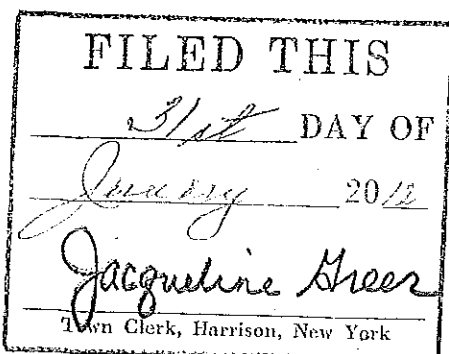 FILED THIS
31st DAY OF
January 20
Jacqueline Greer
Town Clerk, Harrison, New York